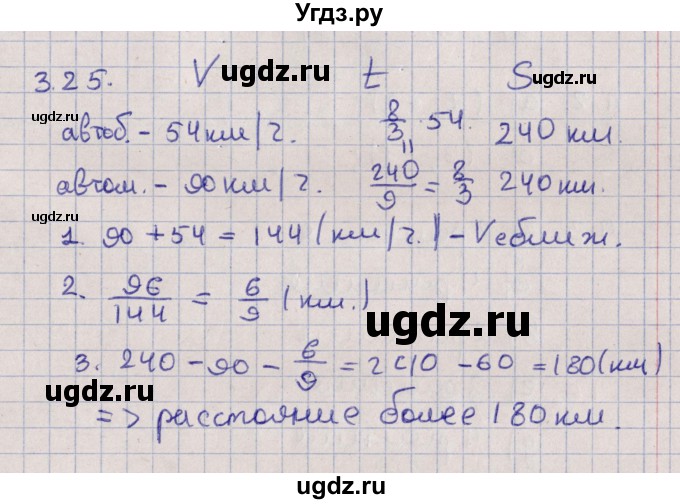 Угдз.ру
3.25. V t S
автоб. - 54 км/ч. 8/3 · 54. 240 км.
автом. - 90 км/ч. 240/9 = 8/3 240 км.
1. 90 + 54 = 144 (км/ч.) - Vсближ.
2. 96/144 = 6/9 (км.)
3. 240 - 90 - 6/9 = 240 - 60 = 180 (км)
=> расстояние более 180 км.
ugdz.ru
ugdz.ru
ugdz.ru
ugdz.ru
ugdz.ru
ugdz.ru
ugdz.ru
ugdz.ru
ugdz.ru